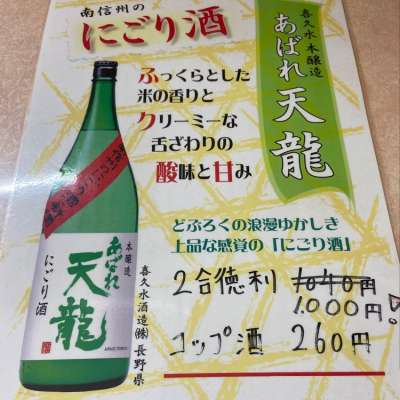 南信州の
にごり酒
喜久水 本醸造
あばれ天龍
ふっくらとした
米の香りと
クリーミーな
舌ざわりの
酸味と甘み
どぶろくの浪漫ゆかしき
上品な感覚の「にごり酒」
2合徳利 1040円
1.000円
コップ酒 260円
本醸造
あばれ
天龍
にごり酒
喜久水酒造㈱ 長野県